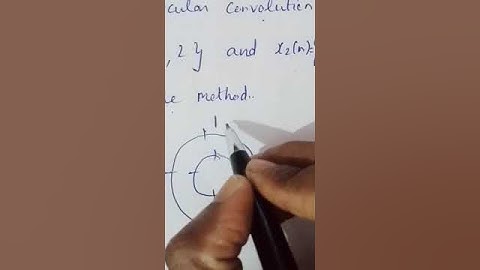 cular Convolution
,2} and x₂(n)=
method..
1